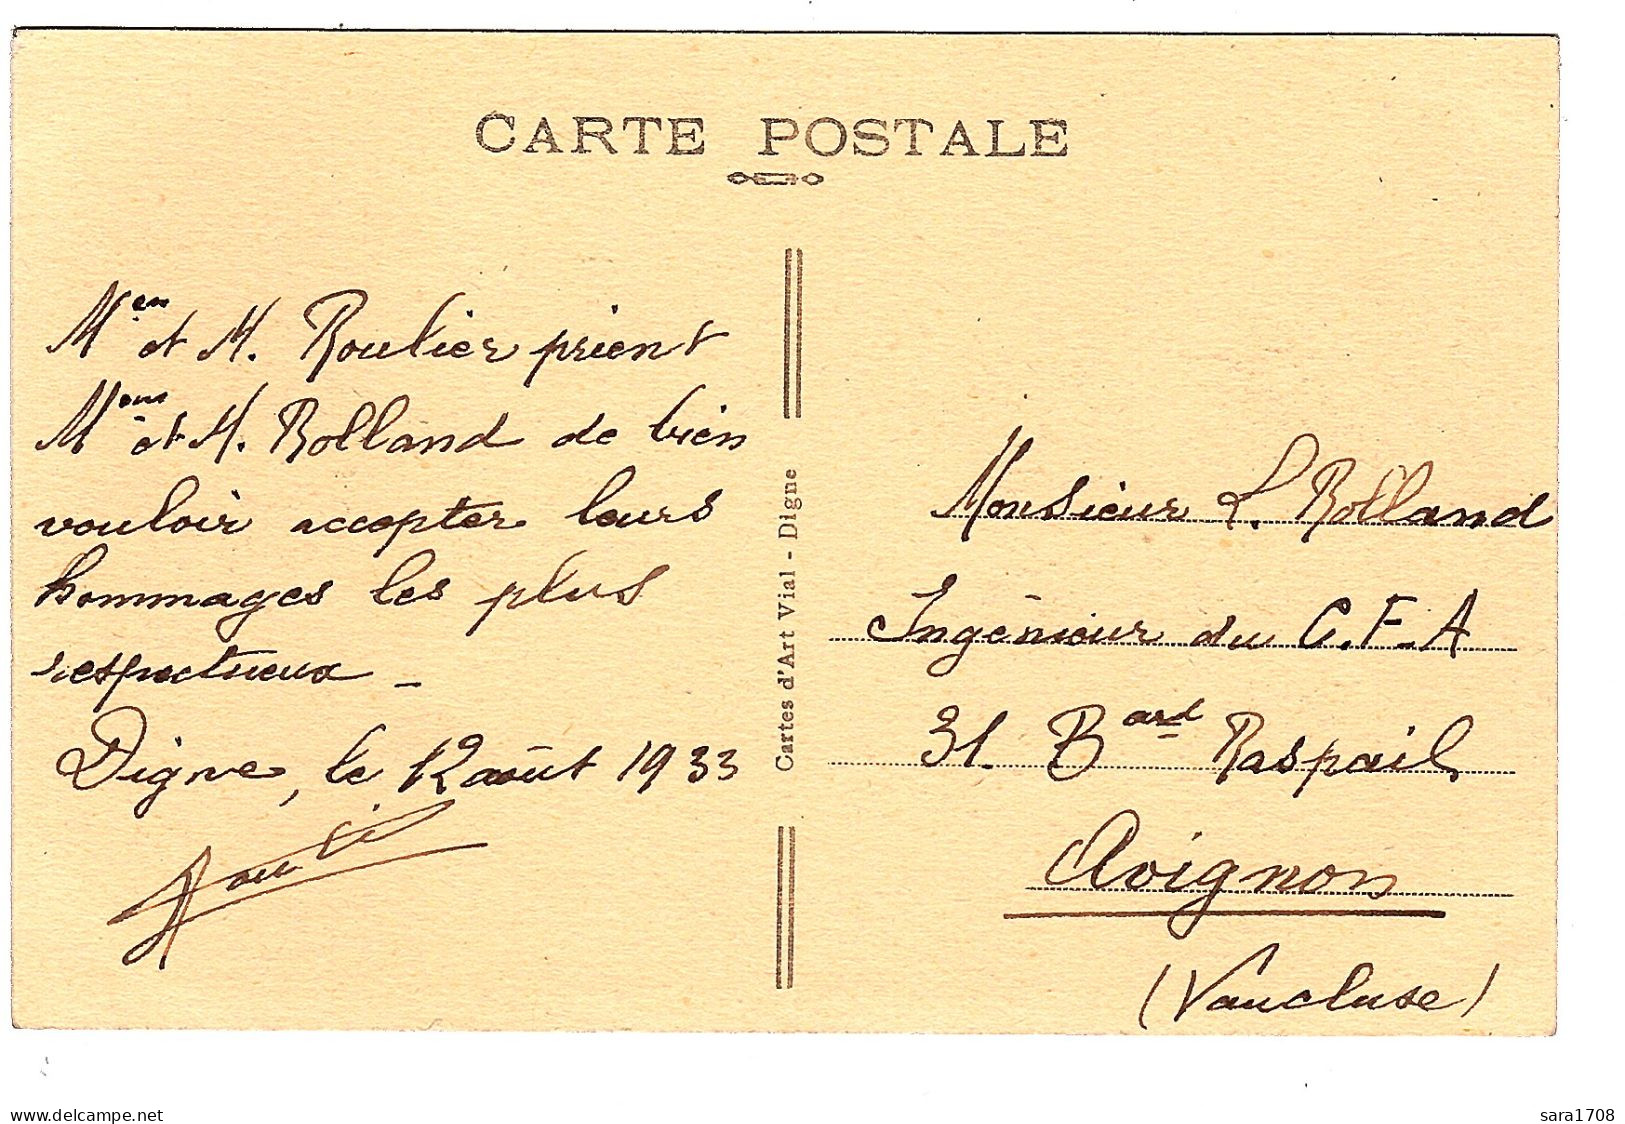 CARTE POSTALE
Mem et M. Roulier prient
Mem et M. Rolland de bien
vouloir accepter leurs
hommages les plus
respectueux _
Digne, le 12 août 1933
Cartes d'Art Vial - Digne
Monsieur L. Rolland
Ingénieur du C.F.A
31. Bard Raspail
Avignon
(Vaucluse)
www.delcampe.net
sara1708